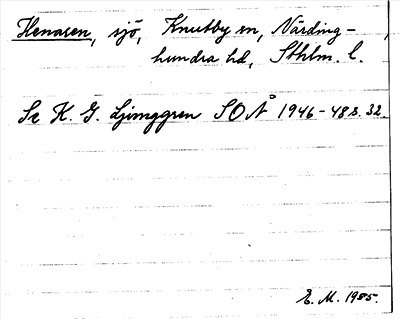 Henasen, sjö, Knutby sn, Närding-
hundra hd, Sthlm. l.
Se K. G. Ljunggren SOÅ 1946-48 s. 32.
E. M. 1985.